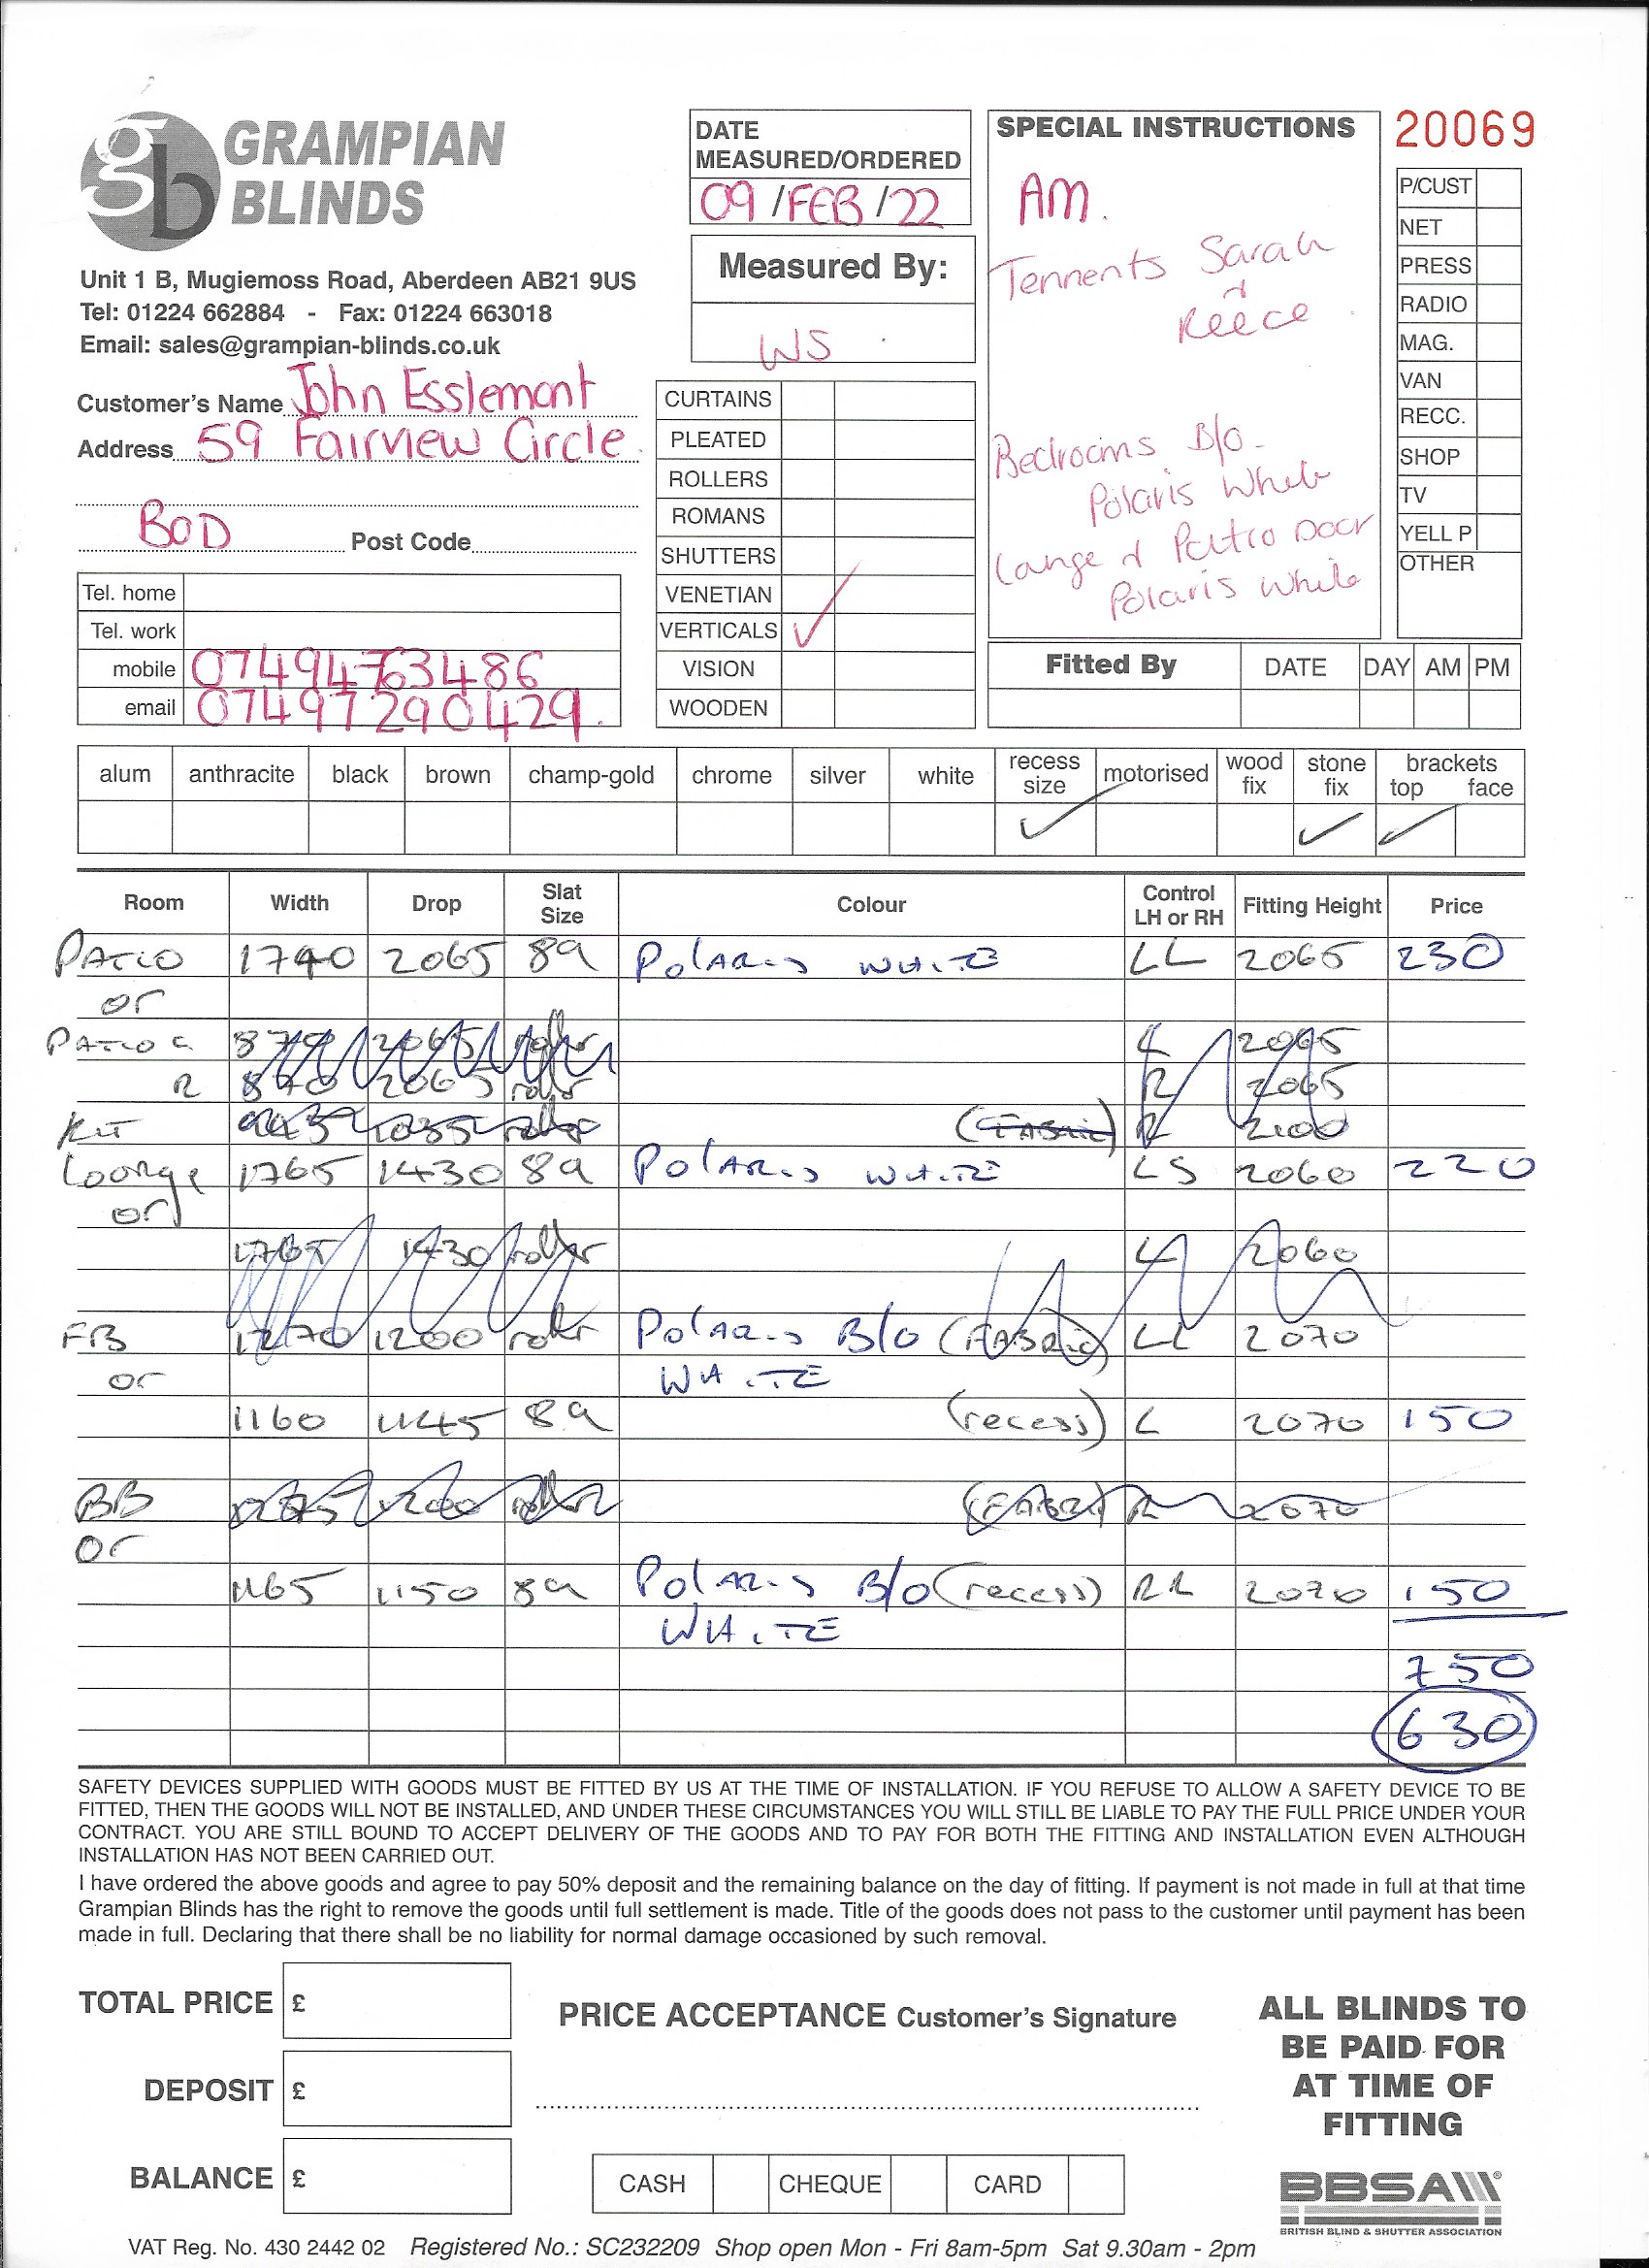 GRAMPIAN
BLINDS
Unit 1 B, Mugiemoss Road, Aberdeen AB21 9US
Tel: 01224 662884 - Fax: 01224 663018
Email: sales@grampian-blinds.co.uk
Customer's Name John Esslemont
Address 59 Fairview Circle
BOD Post Code
Tel. home
Tel. work
mobile 07494763486
email 07497290429.
DATE
MEASURED/ORDERED
09/FEB/22
Measured By:
WS
CURTAINS
PLEATED
ROLLERS
ROMANS
SHUTTERS
VENETIAN
VERTICALS ✓
VISION
WOODEN
SPECIAL INSTRUCTIONS
AM.
Tennents Sarah
&
Reece
Bedrooms B/o -
Polaris White
Lounge & Patio Door
Polaris White
20069
P/CUST
NET
PRESS
RADIO
MAG.
VAN
RECC.
SHOP
TV
YELL P
OTHER
Fitted By DATE DAY AM PM
alum anthracite black brown champ-gold chrome silver white recess size motorised wood fix stone fix brackets top face
✓ ✓ ✓
Room Width Drop Slat Size Colour Control LH or RH Fitting Height Price
PATIO 1740 2065 89 POLARIS WHITE LL 2065 230
or
PATIO L 870 2065 roller L 2065
R 870 2065 roller R 2065
KIT roller (FABRIC) R 2100
Lounge 1765 1430 89 POLARIS WHITE LS 2060 220
or
1765 1430 roller L 2060
FB 1270 1200 roller POLARIS B/O (FABRIC) LL 2070
or WHITE
1160 1145 89 (recess) L 2070 150
BB 1275 1200 roller (FABRIC) R 2070
or
1165 1150 89 POLARIS B/O (recess) RR 2070 150
WHITE
750
630
SAFETY DEVICES SUPPLIED WITH GOODS MUST BE FITTED BY US AT THE TIME OF INSTALLATION. IF YOU REFUSE TO ALLOW A SAFETY DEVICE TO BE
FITTED, THEN THE GOODS WILL NOT BE INSTALLED, AND UNDER THESE CIRCUMSTANCES YOU WILL STILL BE LIABLE TO PAY THE FULL PRICE UNDER YOUR
CONTRACT. YOU ARE STILL BOUND TO ACCEPT DELIVERY OF THE GOODS AND TO PAY FOR BOTH THE FITTING AND INSTALLATION EVEN ALTHOUGH
INSTALLATION HAS NOT BEEN CARRIED OUT.
I have ordered the above goods and agree to pay 50% deposit and the remaining balance on the day of fitting. If payment is not made in full at that time
Grampian Blinds has the right to remove the goods until full settlement is made. Title of the goods does not pass to the customer until payment has been
made in full. Declaring that there shall be no liability for normal damage occasioned by such removal.
TOTAL PRICE £
DEPOSIT £
BALANCE £
PRICE ACCEPTANCE Customer's Signature
CASH CHEQUE CARD
ALL BLINDS TO
BE PAID FOR
AT TIME OF
FITTING
BBSA
BRITISH BLIND & SHUTTER ASSOCIATION
VAT Reg. No. 430 2442 02 Registered No.: SC232209 Shop open Mon - Fri 8am-5pm Sat 9.30am - 2pm